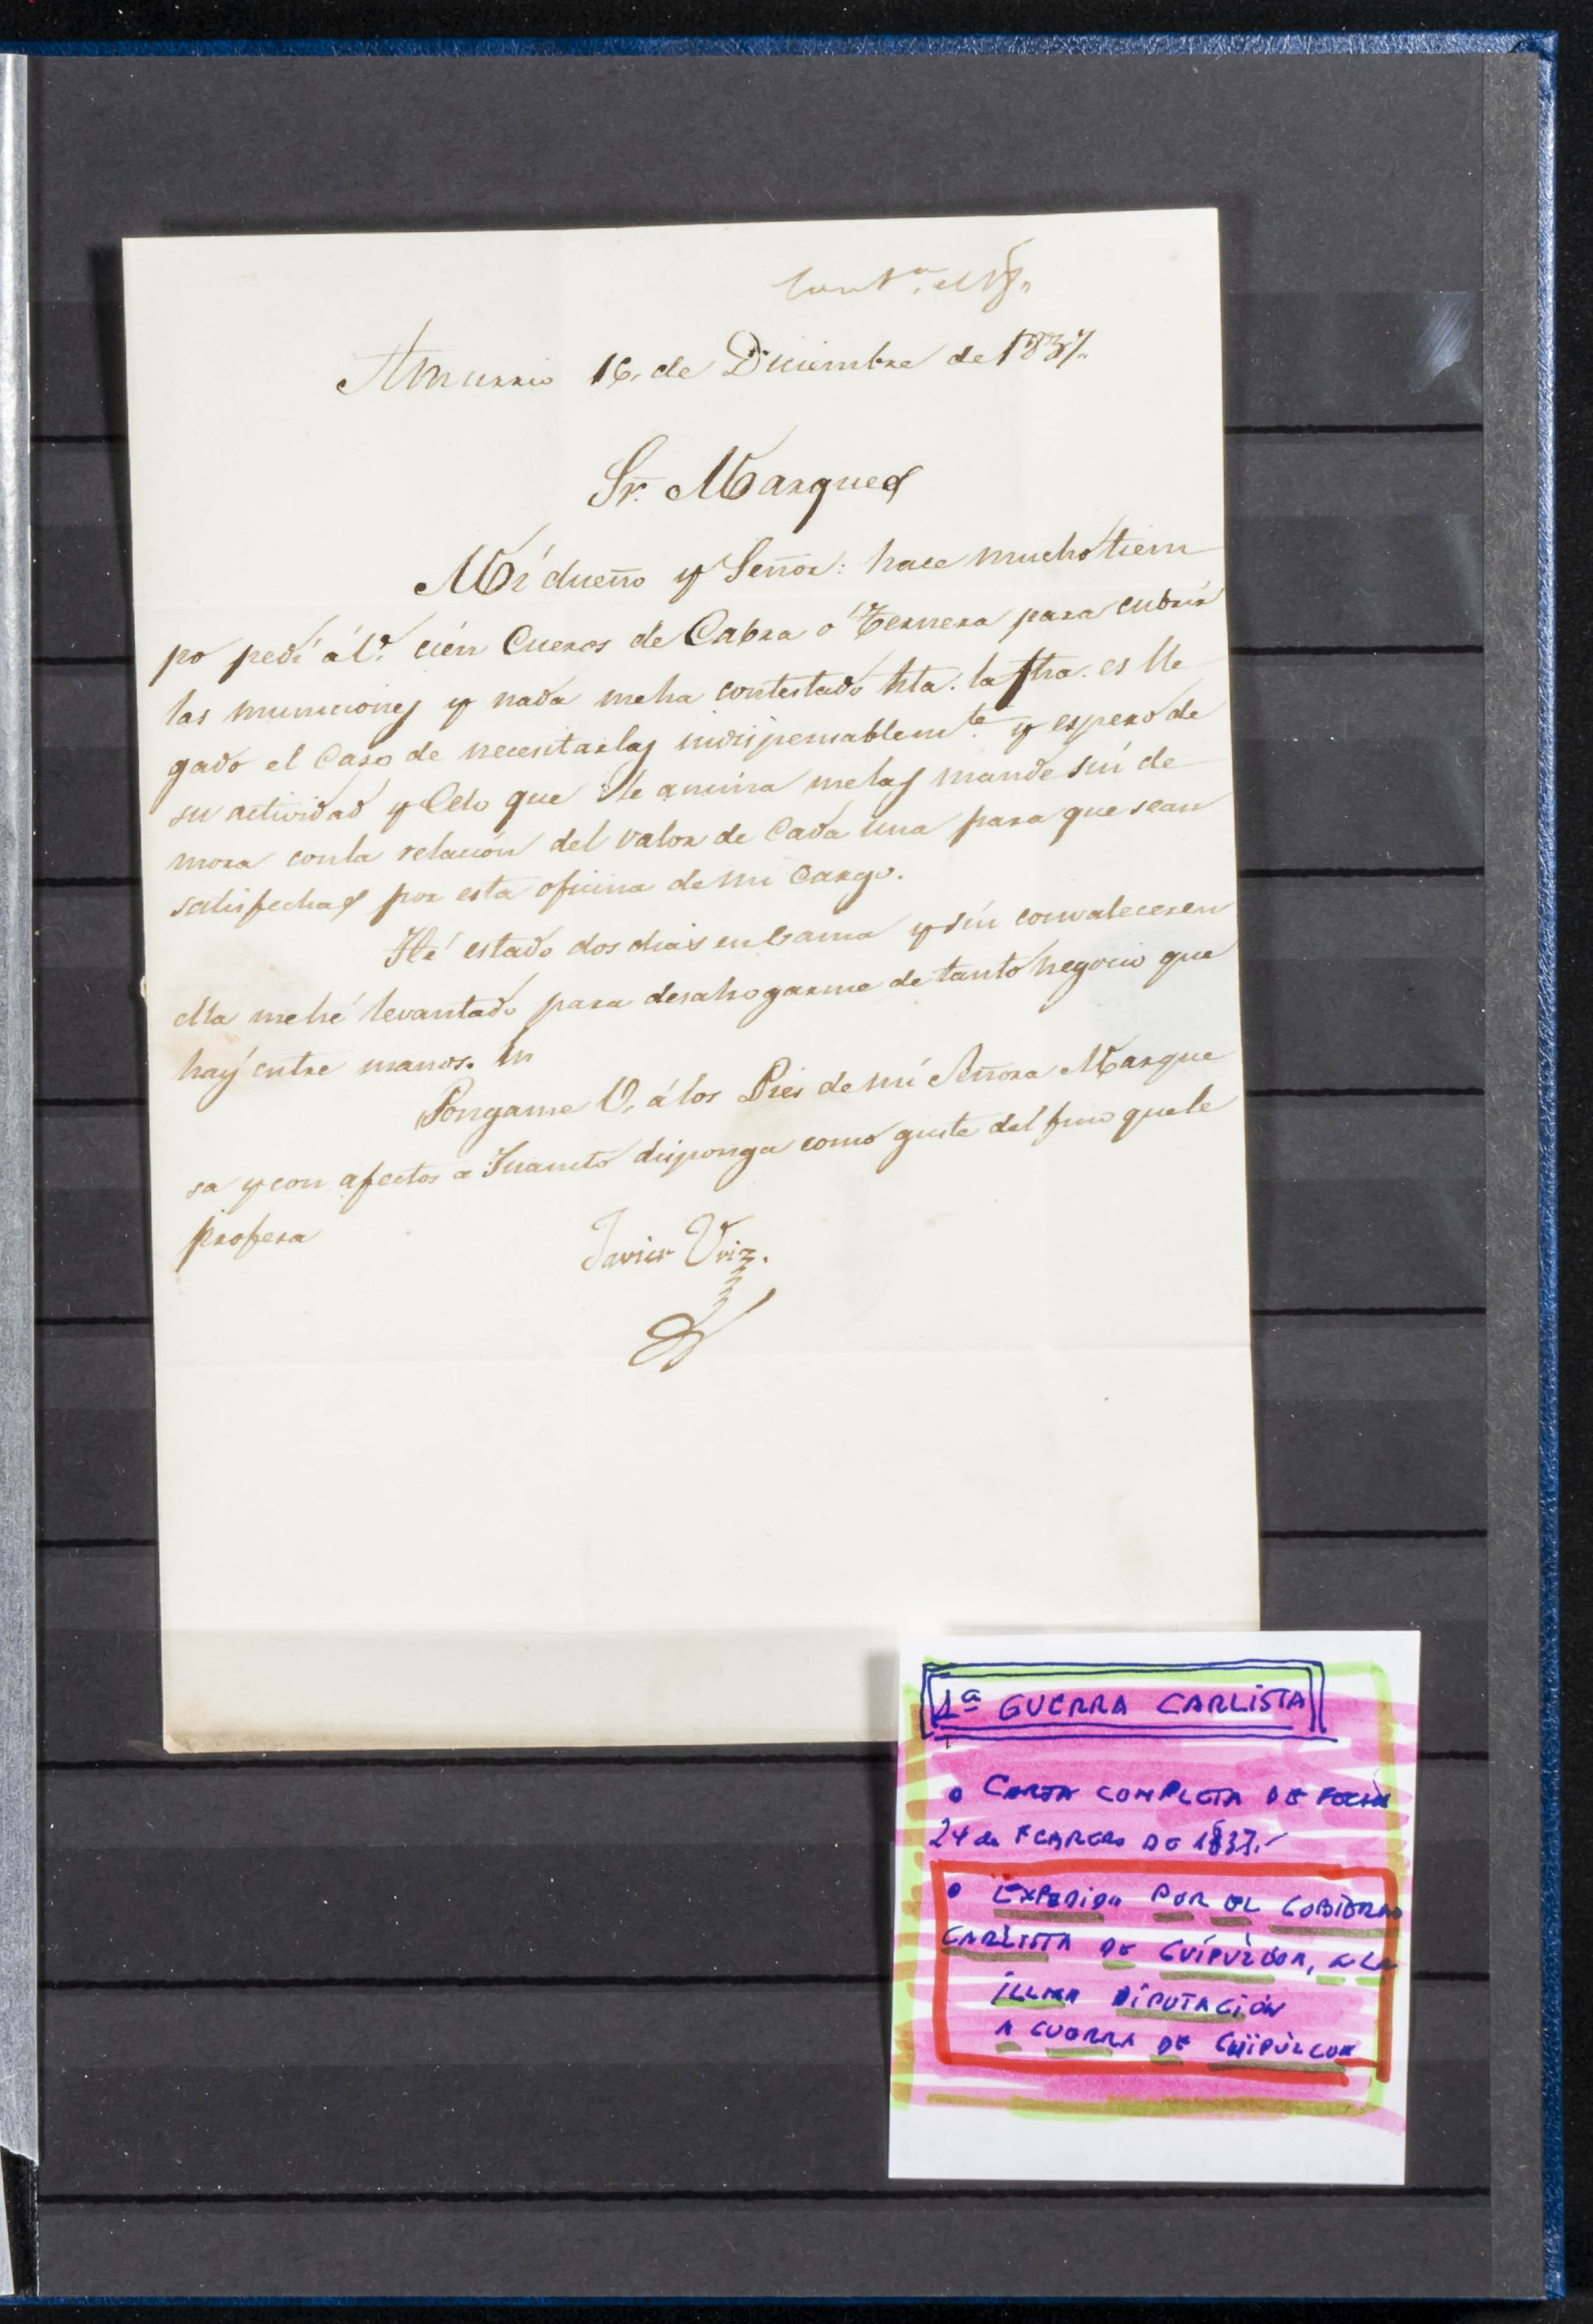 Cont.ª el 18,,
Amurrio 16,, de Diciembre de 1837,,
Sr. Marques
Mi dueño y Señor: hace mucho tiem
po pedi á V. cien Cueros de Cabra ó Ternera para cubrir
las municiones y nada me ha contestado hta. la fha. es lle
gado el Caso de necesitarlas indispensablem.te y espero de
su actividad y Celo que le anima me las mande sin de
mora con la relacion del valor de Cada una para que sean
satisfechas por esta oficina de mi Cargo.
Hé estado dos dias en Cama y sin convalecer en
ella me hé levantado para desahogarme de tanto negocio que
hay entre manos.
Pongame V. á los Pies de mi Señora Marque
sa y con afectos a Juanito disponga como guste del fino que le
profesa
Javier Uriz.
1ª GUERRA CARLISTA
• CARTA COMPLETA DE FECHA
24 de FEBRERO DE 1837.-
• EXPEDIDA POR EL GOBIERNO
CARLISTA DE GUIPUZCOA, A LA
ILLMA DIPUTACIÓN
A GUERRA DE GUIPÚZCOA